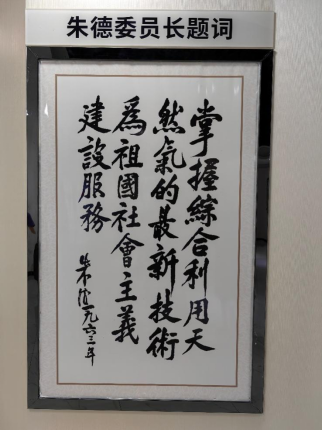 朱德委员长题词
掌握綜合利用天
然氣的最新技術
爲祖國社會主義
建設服務
朱德一九六三年